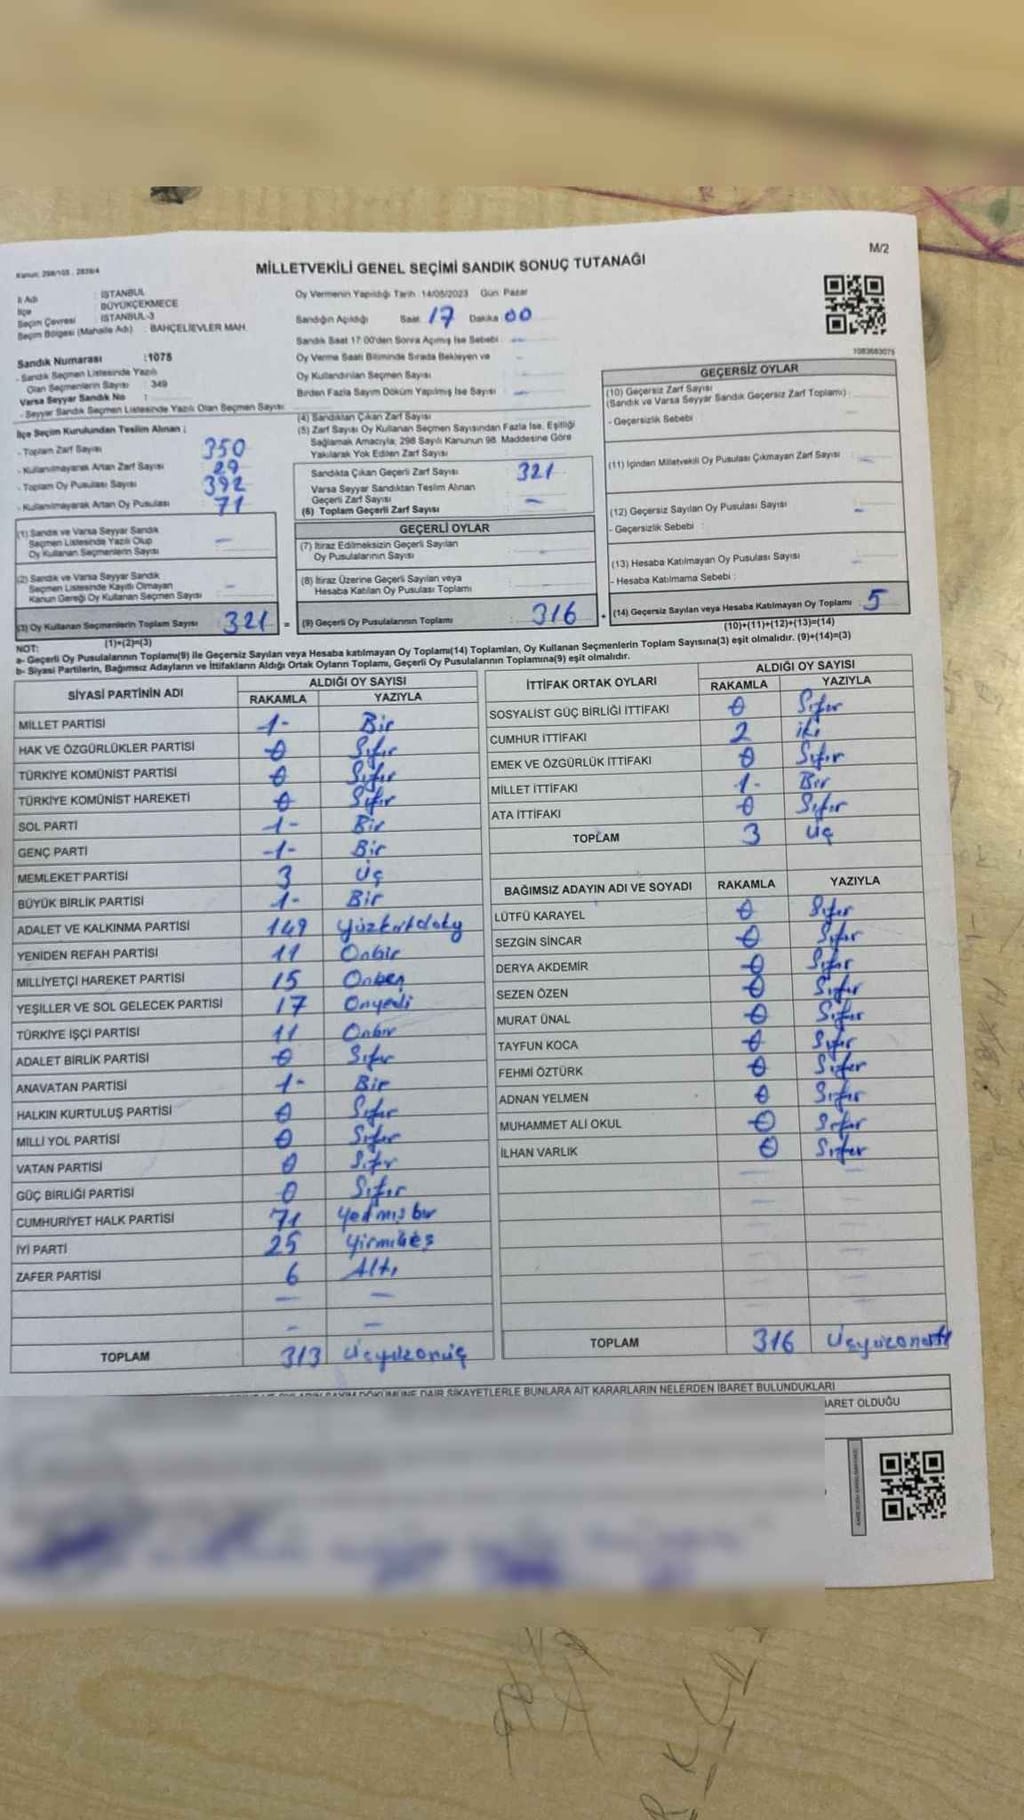 Kanun: 298/105 , 2839/4
M/2
MİLLETVEKİLİ GENEL SEÇİMİ SANDIK SONUÇ TUTANAĞI
İl Adı : İSTANBUL
İlçe : BÜYÜKÇEKMECE
Seçim Çevresi : İSTANBUL-3
Seçim Bölgesi (Mahalle Adı) : BAHÇELİEVLER MAH.
Sandık Numarası :1075
- Sandık Seçmen Listesinde Yazılı
Olan Seçmenlerin Sayısı : 349
Varsa Seyyar Sandık No :
- Seyyar Sandık Seçmen Listesinde Yazılı Olan Seçmen Sayısı :
İlçe Seçim Kurulundan Teslim Alınan ;
- Toplam Zarf Sayısı 350
- Kullanılmayarak Artan Zarf Sayısı 29
- Toplam Oy Pusulası Sayısı 392
- Kullanılmayarak Artan Oy Pusulası 71
(1) Sandık ve Varsa Seyyar Sandık
Seçmen Listesinde Yazılı Olup
Oy Kullanan Seçmenlerin Sayısı -
(2) Sandık ve Varsa Seyyar Sandık
Seçmen Listesinde Kayıtlı Olmayan
Kanun Gereği Oy Kullanan Seçmen Sayısı -
(3) Oy Kullanan Seçmenlerin Toplam Sayısı 321 =
(1)+(2)=(3)
Oy Vermenin Yapıldığı Tarih :14/05/2023 Gün: Pazar
Sandığın Açıldığı Saat 17 Dakika 00
Sandık Saat 17:00'den Sonra Açılmış İse Sebebi -
Oy Verme Saati Bitiminde Sırada Bekleyen ve
Oy Kullandırılan Seçmen Sayısı -
Birden Fazla Sayım Döküm Yapılmış İse Sayısı -
(4) Sandıktan Çıkan Zarf Sayısı
(5) Zarf Sayısı Oy Kullanan Seçmen Sayısından Fazla İse, Eşitliği
Sağlamak Amacıyla, 298 Sayılı Kanunun 98. Maddesine Göre
Yakılarak Yok Edilen Zarf Sayısı
Sandıkta Çıkan Geçerli Zarf Sayısı 321
Varsa Seyyar Sandıktan Teslim Alınan
Geçerli Zarf Sayısı -
(6) Toplam Geçerli Zarf Sayısı
GEÇERLİ OYLAR
(7) İtiraz Edilmeksizin Geçerli Sayılan
Oy Pusulalarının Sayısı -
(8) İtiraz Üzerine Geçerli Sayılan veya
Hesaba Katılan Oy Pusulası Toplamı -
(9) Geçerli Oy Pusulalarının Toplamı 316 +
1083683075
GEÇERSİZ OYLAR
(10) Geçersiz Zarf Sayısı
(Sandık ve Varsa Seyyar Sandık Geçersiz Zarf Toplamı) :
- Geçersizlik Sebebi :
(11) İçinden Milletvekili Oy Pusulası Çıkmayan Zarf Sayısı -
(12) Geçersiz Sayılan Oy Pusulası Sayısı -
- Geçersizlik Sebebi :
(13) Hesaba Katılmayan Oy Pusulası Sayısı -
- Hesaba Katılmama Sebebi :
(14) Geçersiz Sayılan veya Hesaba Katılmayan Oy Toplamı 5
(10)+(11)+(12)+(13)=(14)
NOT:
a- Geçerli Oy Pusulalarının Toplamı(9) ile Geçersiz Sayılan veya Hesaba katılmayan Oy Toplamı(14) Toplamları, Oy Kullanan Seçmenlerin Toplam Sayısına(3) eşit olmalıdır. (9)+(14)=(3)
b- Siyasi Partilerin, Bağımsız Adayların ve İttifakların Aldığı Ortak Oyların Toplamı, Geçerli Oy Pusulalarının Toplamına(9) eşit olmalıdır.
SİYASİ PARTİNİN ADI ALDIĞI OY SAYISI
RAKAMLA YAZIYLA
MİLLET PARTİSİ 1- Bir
HAK VE ÖZGÜRLÜKLER PARTİSİ 0 Sıfır
TÜRKİYE KOMÜNİST PARTİSİ 0 Sıfır
TÜRKİYE KOMÜNİST HAREKETİ 0 Sıfır
SOL PARTİ -1- Bir
GENÇ PARTİ -1- Bir
MEMLEKET PARTİSİ 3 Üç
BÜYÜK BİRLİK PARTİSİ 1- Bir
ADALET VE KALKINMA PARTİSİ 149
YENİDEN REFAH PARTİSİ 11 Onbir
MİLLİYETÇİ HAREKET PARTİSİ 15 Onbeş
YEŞİLLER VE SOL GELECEK PARTİSİ 17 Onyedi
TÜRKİYE İŞÇİ PARTİSİ 11 Onbir
ADALET BİRLİK PARTİSİ 0 Sıfır
ANAVATAN PARTİSİ 1- Bir
HALKIN KURTULUŞ PARTİSİ 0 Sıfır
MİLLİ YOL PARTİSİ 0 Sıfır
VATAN PARTİSİ 0 Sıfır
GÜÇ BİRLİĞİ PARTİSİ 0 Sıfır
CUMHURİYET HALK PARTİSİ 71 Yedmişbir
İYİ PARTİ 25 Yirmibeş
ZAFER PARTİSİ 6 Altı
- -
- -
TOPLAM 313 Üçyüzonüç
İTTİFAK ORTAK OYLARI ALDIĞI OY SAYISI
RAKAMLA YAZIYLA
SOSYALİST GÜÇ BİRLİĞİ İTTİFAKI 0 Sıfır
CUMHUR İTTİFAKI 2 iki
EMEK VE ÖZGÜRLÜK İTTİFAKI 0 Sıfır
MİLLET İTTİFAKI 1- Bir
ATA İTTİFAKI 0 Sıfır
TOPLAM 3 Üç
BAĞIMSIZ ADAYIN ADI VE SOYADI RAKAMLA YAZIYLA
LÜTFÜ KARAYEL 0 Sıfır
SEZGİN SİNCAR 0 Sıfır
DERYA AKDEMİR 0 Sıfır
SEZEN ÖZEN 0 Sıfır
MURAT ÜNAL 0 Sıfır
TAYFUN KOCA 0 Sıfır
FEHMİ ÖZTÜRK 0 Sıfır
ADNAN YELMEN 0 Sıfır
MUHAMMET ALİ OKUL 0 Sıfır
İLHAN VARLIK 0 Sıfır
TOPLAM 316 Üçyüzonaltı
SAYIM DÖKÜMÜNE DAİR ŞİKAYETLERLE BUNLARA AİT KARARLARIN NELERDEN İBARET BULUNDUKLARI
İBARET OLDUĞU